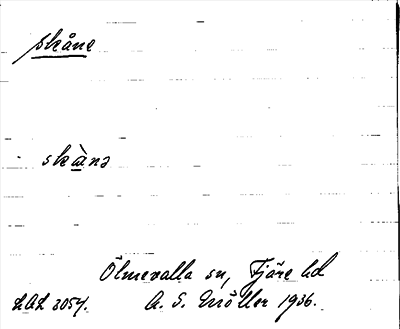 skåne
skæ̀nə
Ölmevalla sn, Fjäre hd
LAL 3054. A. S. Möller 1936.